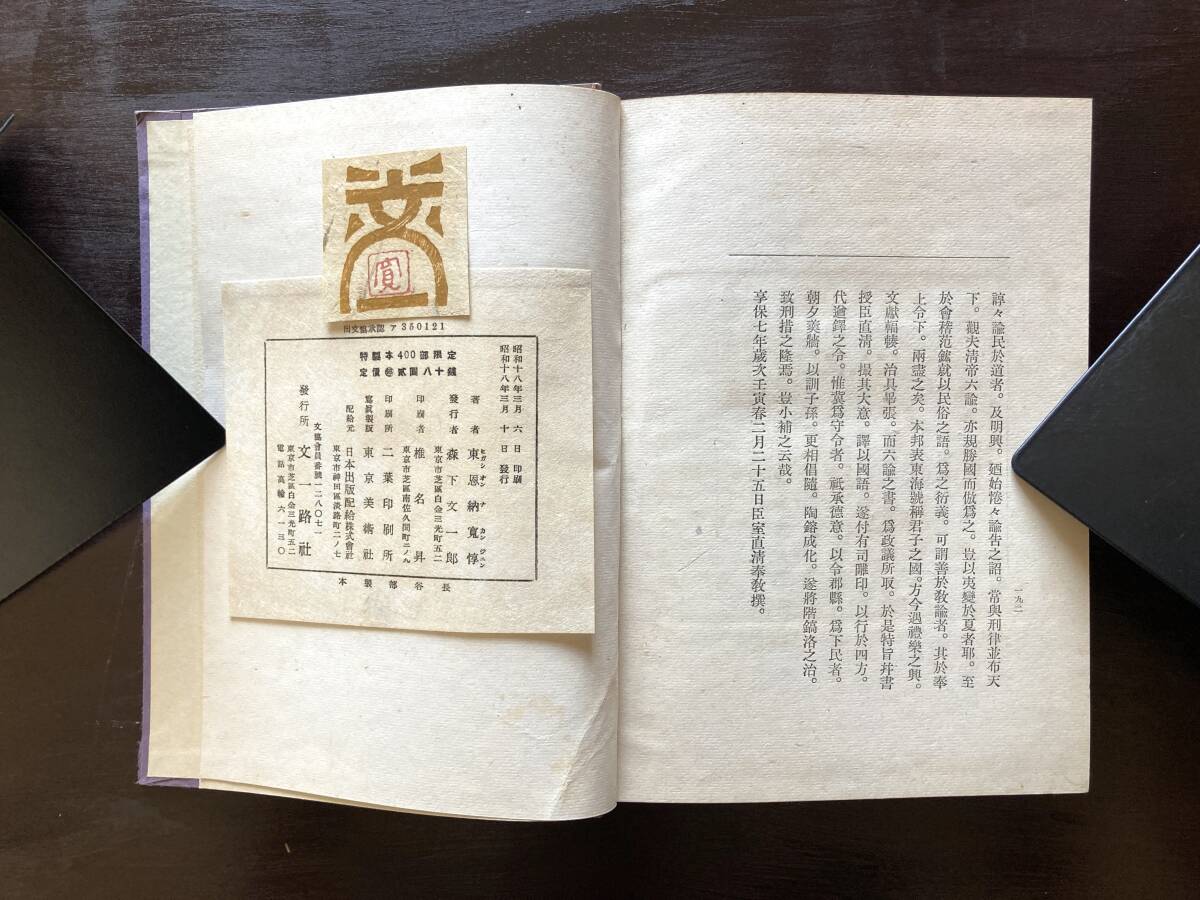 諄々諭民於道者。及明興。廼始惓々諭告之詔。常與刑律並布天
下。觀夫淸帝六諭。亦規勝國而倣爲之。豈以夷變於夏者耶。至
於會稽范鋐就以民俗之語。爲之衍義。可謂善於敎諭者。其於奉
上令下。兩盡之矣。本邦表東海號稱君子之國。方今遇禮樂之興。
文獻輻輳。治具畢張。而六諭之書。爲政議所取。於是特旨幷書
授臣直淸。撮其大意。譯以國語。遂付有司雕印。以行於四方。
代遒鐸之令。惟冀爲守令者。祇承德意。以令郡縣。爲下民者。
朝夕羹牆。以訓子孫。更相倡隨。陶鎔成化。遂將階鎬洛之治。
致刑措之隆焉。豈小補之云哉。
享保七年歲次壬寅春二月二十五日臣室直淸奉敎撰。
一九二
寬
出文協承認 ア350121
特製本400部限定
定價㊕貳圓八十錢
昭和十八年三月六日印刷
昭和十八年三月十日發行
著者 東恩納寬惇
ヒガシ オン ナ カン ジユン
發行者 森下文一郎
東京市芝區白金三光町五二
印刷者 椎名昇
東京市芝區南佐久間町二ノ九
印刷所 二葉印刷所
寫眞製版 東京美術社
配給元 日本出版配給株式會社
東京市神田區淡路町二ノ七
文協會員番號一二八〇七一
發行所 文一路社
東京市芝區白金三光町五二
電話高輪六一三〇
長谷部製本